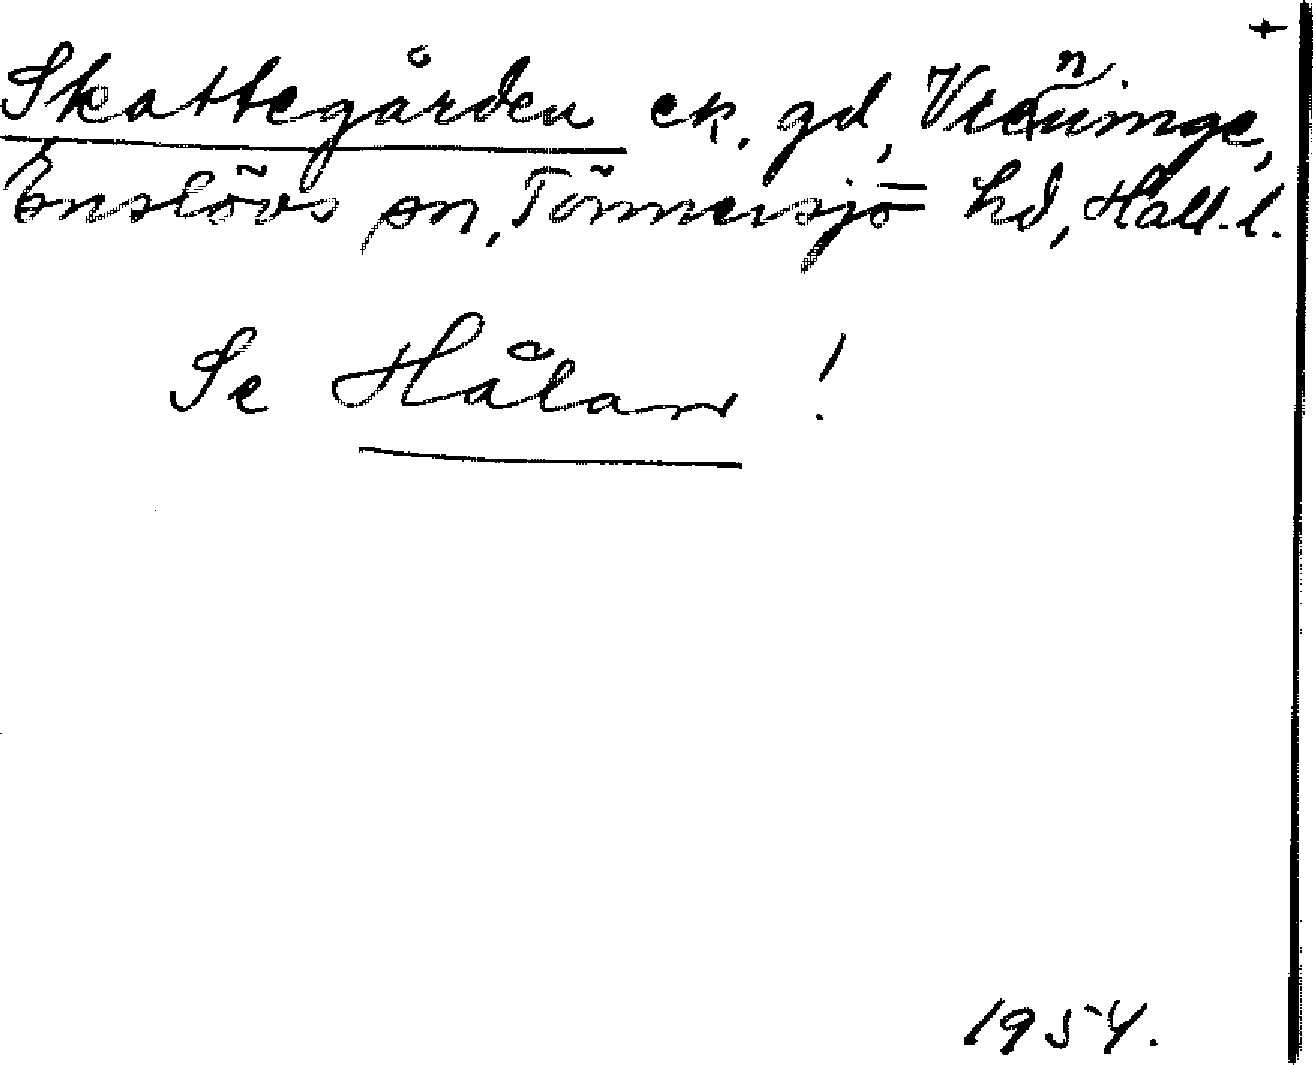 +
Skattegården ek. gd, Vrenninge,
Enslövs sn, Tönnersjö hd, Hall. l.
Se Hålan!
1954.